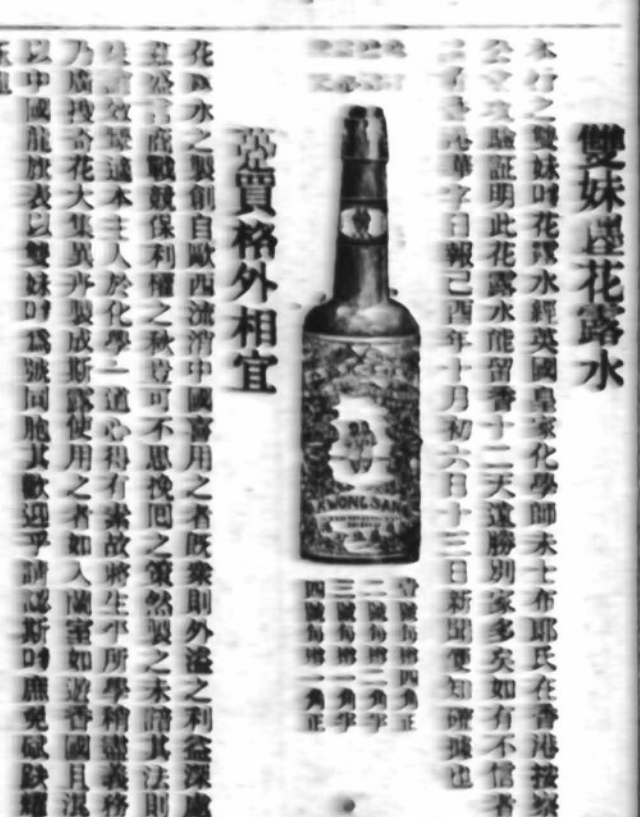 雙妹嚜花露水
本行之雙妹嘜花露水經英國皇家化學師未士布耶氏在香港按察
公文攷驗証明此花露水能留香十二天遠勝別家多矣如有不信者
香港華字日報己酉年十月初六日十三日新聞便知確據也
KWONG SANG
壹號每樽四角正
二號每樽二角半
三號每樽一角半
四號每樽一角正
賈格外相宜
花露水之製創自歐西流消中國喜用之者既衆則外溢之利益深處
商戰競保利權之秋豈可不思挽囘之策然製之未諳其法則
效顰適本主人於化學一道心得有素故將生平所學稍盡義務
乃廣搜奇花大集異卉製成斯露使用之者如入蘭室如遊香國且混
以中國龍旂表以雙妹嘜爲號同胞其歡迎乎請認斯嘜庶免